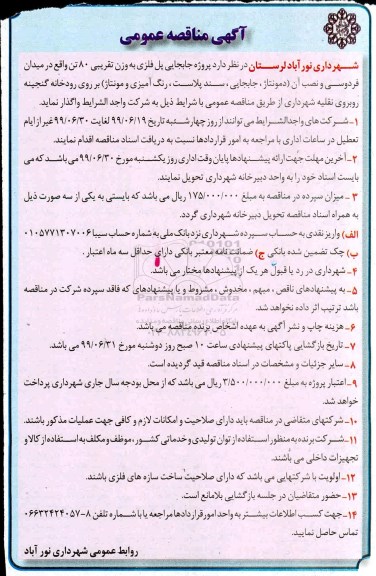 آگهی مناقصه عمومی
شهرداری نورآباد لرستان در نظر دارد پروژه جابجایی پل فلزی به وزن تقریبی ۸۰ تن واقع در میدان
فردوسی و نصب آن (دمونتاژ ، جابجایی ، سند پلاست ، رنگ آمیزی و مونتاژ) بر روی رودخانه گنجینه
روبروی نقلیه شهرداری از طریق مناقصه عمومی با شرایط ذیل به شرکت واجد الشرایط واگذار نماید.
۱- شرکت های واجدالشرایط می توانند از روز چهارشنبه تاریخ ۹۹/۰۶/۱۹ لغایت ۹۹/۰۶/۳۰ غیر از ایام
تعطیل در ساعات اداری با مراجعه به امور قراردادها نسبت به دریافت اسناد مناقصه اقدام نمایند.
۲- آخرین مهلت جهت ارائه پیشنهادها پایان وقت اداری روز یکشنبه مورخ ۹۹/۰۶/۳۰ می باشد که می
بایست اسناد خود را به واحد دبیرخانه شهرداری تحویل نمایند.
۳ - میزان سپرده در مناقصه به مبلغ ۱۷۵/۰۰۰/۰۰۰ ریال می باشد که بایستی به یکی از سه صورت ذیل
به همراه اسناد مناقصه تحویل دبیرخانه شهرداری گردد.
الف) واریز نقدی به حساب سپرده شهرداری نزد بانک ملی به شماره حساب سیبا ۰۱۰۵۷۷۱۳۰۷۰۰۶
ب) چک تضمین شده بانکی ج) ضمانت نامه معتبر بانکی دارای حداقل سه ماه اعتبار .
۴- شهرداری در رد یا قبول هر یک از پیشنهادها مختار می باشد.
۵- به پیشنهادهای ناقص ، مبهم ، مخدوش ، مشروط و یا پیشنهادهای که فاقد سپرده شرکت در مناقصه
باشد ترتیب اثر داده نخواهد شد.
۶- هزینه چاپ و نشر آگهی به عهده اشخاص برنده مناقصه می باشد.
۷- تاریخ بازگشایی پاکتهای پیشنهادی ساعت ۱۰ صبح روز دوشنبه مورخ ۹۹/۰۶/۳۱ می باشد.
۸- سایر جزئیات و مشخصات در اسناد مناقصه قید گردیده است.
۹- اعتبار پروژه به مبلغ ۳/۵۰۰/۰۰۰/۰۰۰ ریال می باشد که از محل بودجه سال جاری شهرداری پرداخت
خواهد شد.
۱۰- شرکتهای متقاضی در مناقصه باید دارای صلاحیت و امکانات لازم و کافی جهت عملیات مذکور باشند.
۱۱- شرکت برنده به منظور استفاده از توان تولیدی و خدماتی کشور، موظف و مکلف به استفاده از کالا و
تجهیزات داخلی می باشند.
۱۲- اولویت با شرکتهایی می باشد که دارای صلاحیت ساخت سازه های فلزی باشند.
۱۳- حضور متقاضیان در جلسه بازگشایی بلامانع است.
۱۴- جهت کسب اطلاعات بیشتر به واحد امور قراردادها مراجعه یا با شماره تلفن ۸-۰۶۶۳۲۴۲۴۰۵۷
تماس حاصل نمایید.
روابط عمومی شهرداری نور آباد